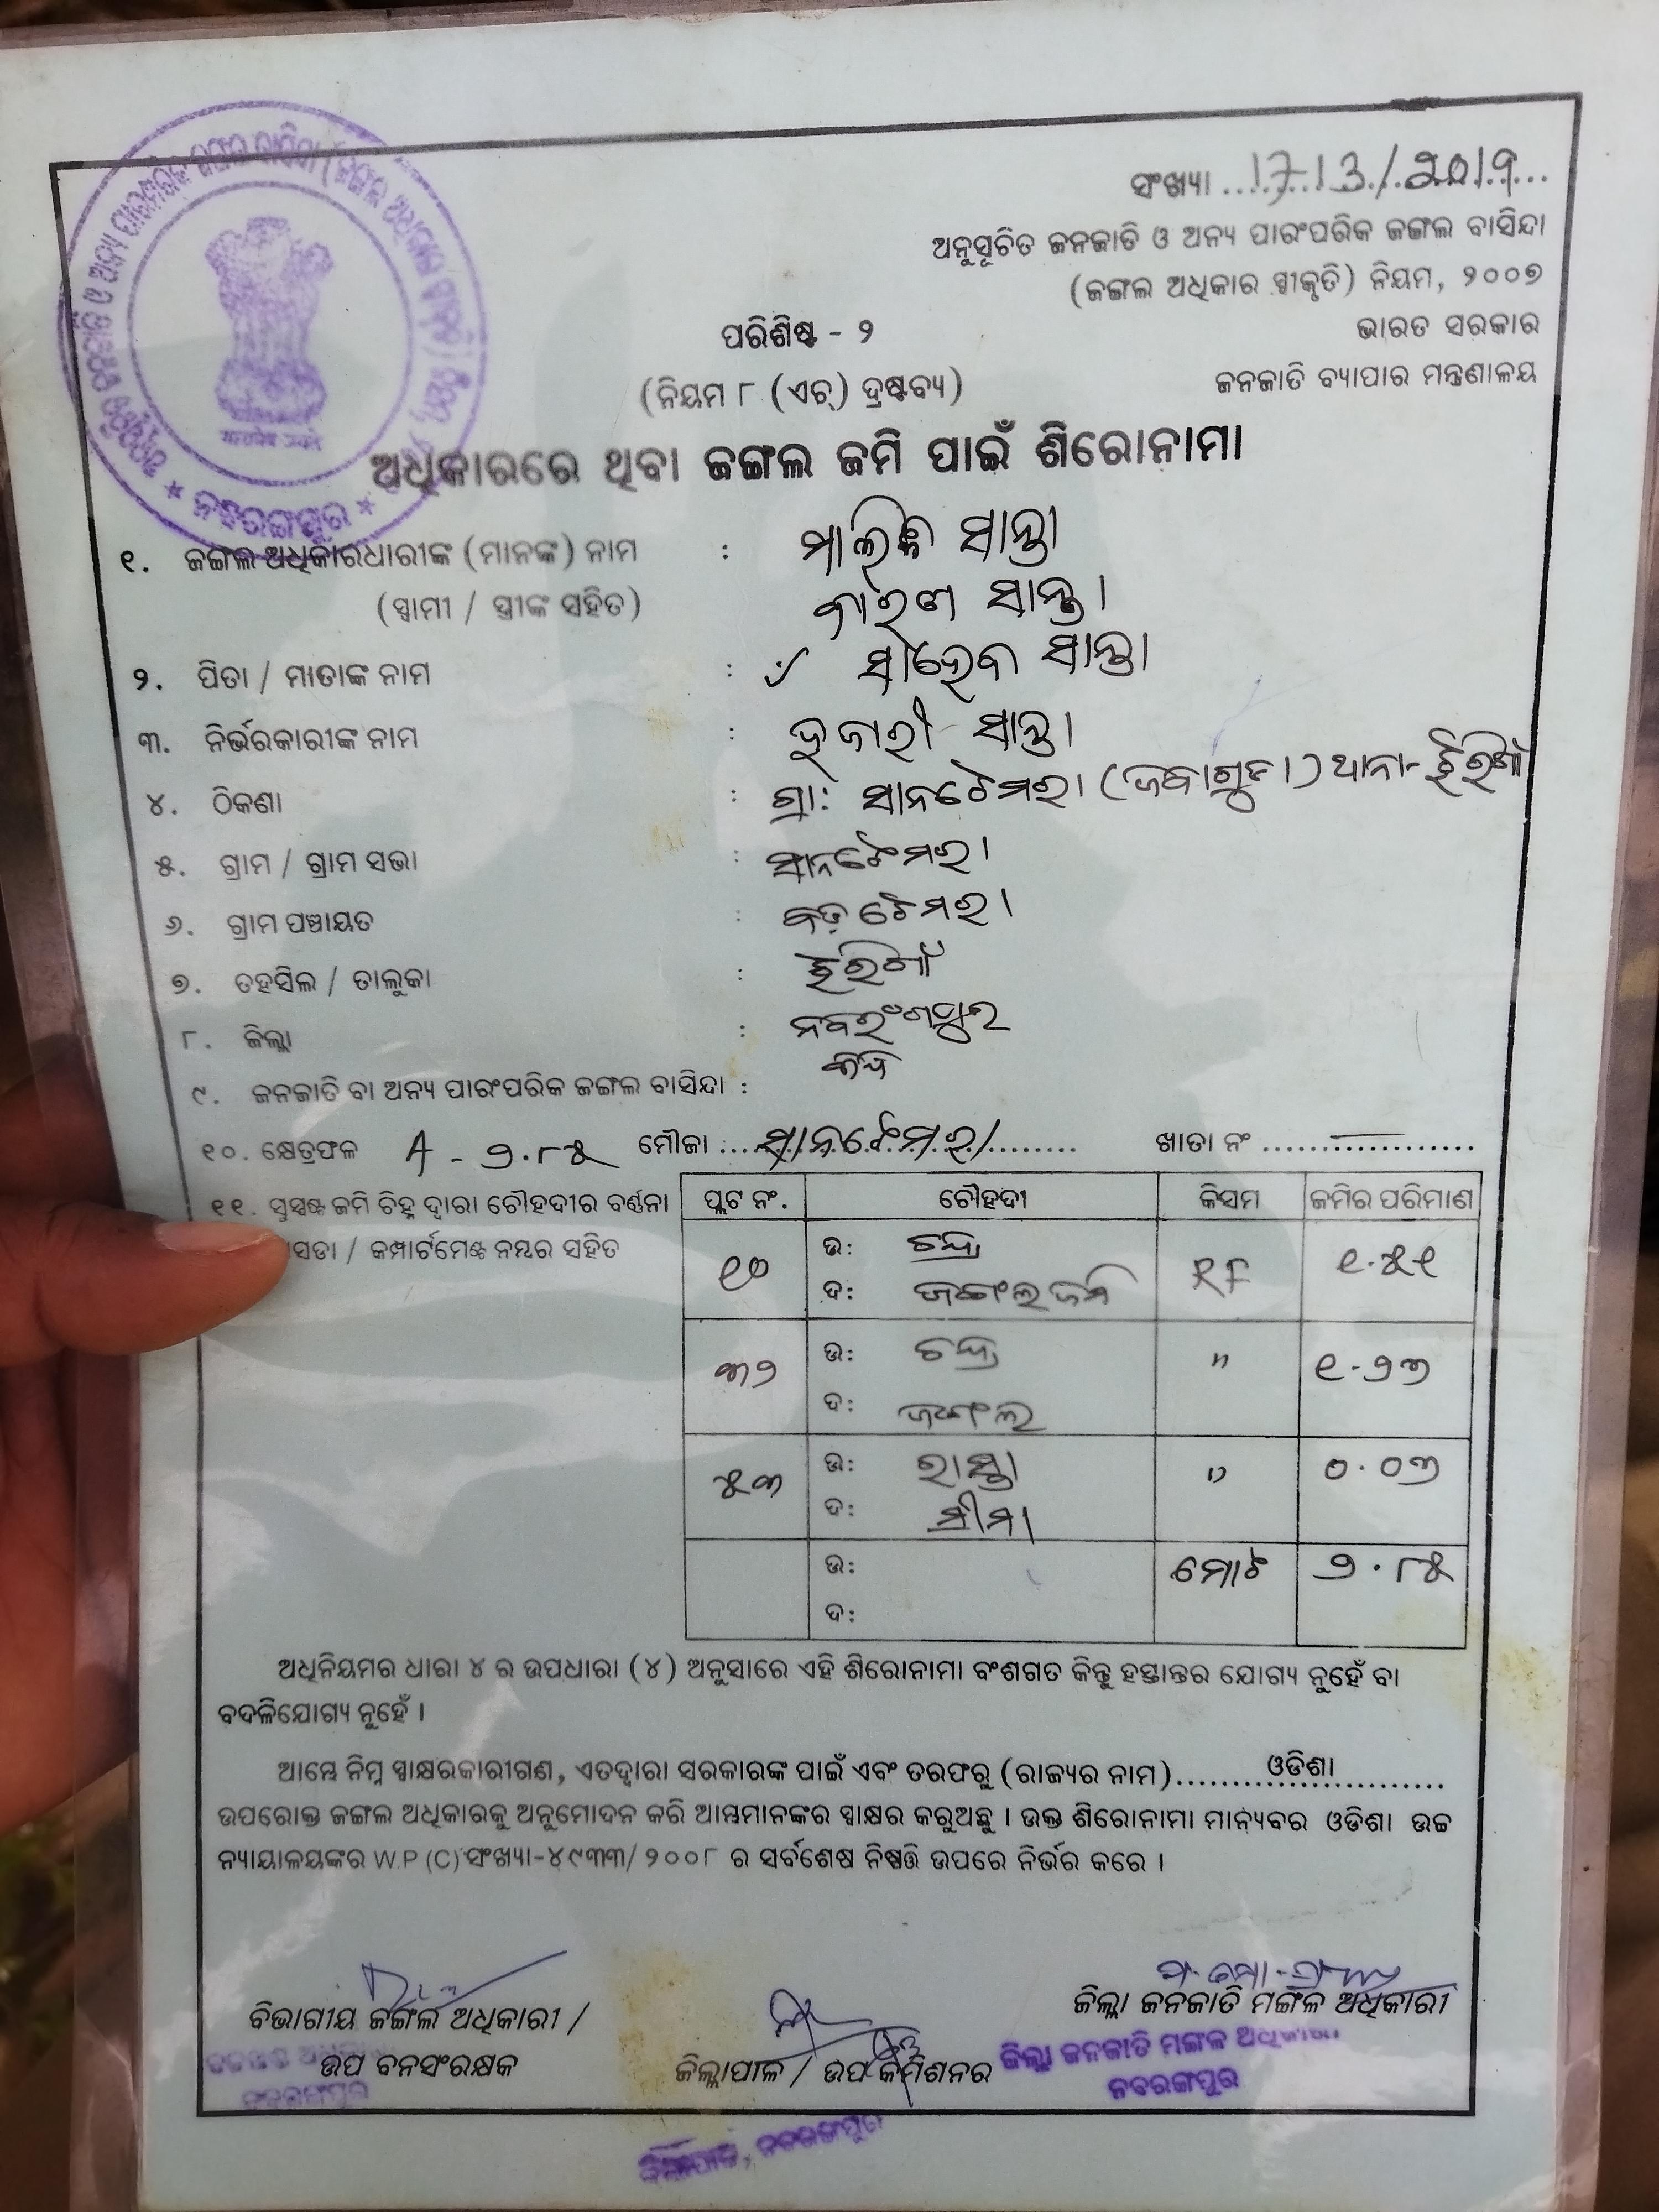 ସଂଖ୍ୟା ...1713/2019...
ଅନୁସୂଚିତ ଜନଜାତି ଓ ଅନ୍ୟ ପାରଂପରିକ ଜଙ୍ଗଲ ବାସିନ୍ଦା
(ଜଙ୍ଗଲ ଅଧିକାର ସ୍ୱୀକୃତି) ନିୟମ, ୨୦୦୭
ପରିଶିଷ୍ଟ - ୨
ଭାରତ ସରକାର
(ନିୟମ ୮ (ଏଚ୍) ଦ୍ରଷ୍ଟବ୍ୟ)
ଜନଜାତି ବ୍ୟାପାର ମନ୍ତ୍ରଣାଳୟ
ନବରଙ୍ଗପୁର
ଅଧିକାରରେ ଥିବା ଜଙ୍ଗଲ ଜମି ପାଇଁ ଶିରୋନାମା
୧. ଜଙ୍ଗଲ ଅଧିକାରଧାରୀଙ୍କ (ମାନଙ୍କ) ନାମ : ସାନ୍ତା
(ସ୍ୱାମୀ / ସ୍ତ୍ରୀଙ୍କ ସହିତ) ସାନ୍ତା
୨. ପିତା / ମାତାଙ୍କ ନାମ : ସାନ୍ତା
୩. ନିର୍ଭରକାରୀଙ୍କ ନାମ : ସାନ୍ତା
୪. ଠିକଣା : ଗ୍ରା: ସାନଟେମରା (ଜବାଗୁଡା) ଥାନା- ଝରିଗାଁ
୫. ଗ୍ରାମ / ଗ୍ରାମ ସଭା : ସାନଟେମରା
୬. ଗ୍ରାମ ପଞ୍ଚାୟତ : ବଡ଼ଟେମରା
୭. ତହସିଲ / ତାଲୁକା : ଝରିଗାଁ
୮. ଜିଲ୍ଲା : ନବରଂଗପୁର
୯. ଜନଜାତି ବା ଅନ୍ୟ ପାରଂପରିକ ଜଙ୍ଗଲ ବାସିନ୍ଦା :
୧୦. କ୍ଷେତ୍ରଫଳ A - ୨.୮୫ ମୌଜା ...ସାନଟେମରା... ଖାତା ନଂ ......
୧୧. ସୁସ୍ପଷ୍ଟ ଜମି ଚିହ୍ନ ଦ୍ୱାରା ଚୌହଦୀର ବର୍ଣ୍ଣନା
ସଡା / କମ୍ପାର୍ଟମେଣ୍ଟ ନମ୍ବର ସହିତ
ପ୍ଲଟ ନଂ. ଚୌହଦୀ କିସମ ଜମିର ପରିମାଣ
୧୦ ଉ: ଚନ୍ଦ୍ର RF ୧.୫୧
ଦ: ଜଙ୍ଗଲ ଜମି
୩୨ ଉ: ଚନ୍ଦ୍ର " ୧.୨୩
ଦ: ଜଙ୍ଗଲ
୫୩ ଉ: ରାସ୍ତା " ୦.୦୩
ଦ: ସୀମା
ଉ: ମୋଟ ୨.୮୫
ଦ:
ଅଧିନିୟମର ଧାରା ୪ ର ଉପଧାରା (୪) ଅନୁସାରେ ଏହି ଶିରୋନାମା ବଂଶଗତ କିନ୍ତୁ ହସ୍ତାନ୍ତର ଯୋଗ୍ୟ ନୁହେଁ ବା
ବଦଳିଯୋଗ୍ୟ ନୁହେଁ ।
ଆମ୍ଭେ ନିମ୍ନ ସ୍ୱାକ୍ଷରକାରୀଗଣ, ଏତଦ୍ୱାରା ସରକାରଙ୍କ ପାଇଁ ଏବଂ ତରଫରୁ (ରାଜ୍ୟର ନାମ)......ଓଡିଶା......
ଉପରୋକ୍ତ ଜଙ୍ଗଲ ଅଧିକାରକୁ ଅନୁମୋଦନ କରି ଆମ୍ଭମାନଙ୍କର ସ୍ୱାକ୍ଷର କରୁଅଛୁ । ଉକ୍ତ ଶିରୋନାମା ମାନ୍ୟବର ଓଡିଶା ଉଚ୍ଚ
ନ୍ୟାୟାଳୟଙ୍କର W.P (C) ସଂଖ୍ୟା-୪୯୩୩/ ୨୦୦୮ ର ସର୍ବଶେଷ ନିଷ୍ପତ୍ତି ଉପରେ ନିର୍ଭର କରେ ।
ବିଭାଗୀୟ ଜଙ୍ଗଲ ଅଧିକାରୀ /
ଉପ ବନସଂରକ୍ଷକ
ଜିଲ୍ଲାପାଳ / ଉପ କମିଶନର
ଜିଲ୍ଲା ଜନଜାତି ମଙ୍ଗଳ ଅଧିକାରୀ
ଜିଲ୍ଲା ଜନଜାତି ମଙ୍ଗଳ ଅଧିକାରୀ
ନବରଙ୍ଗପୁର
ଜିଲ୍ଲାପାଳ, ନବରଙ୍ଗପୁର